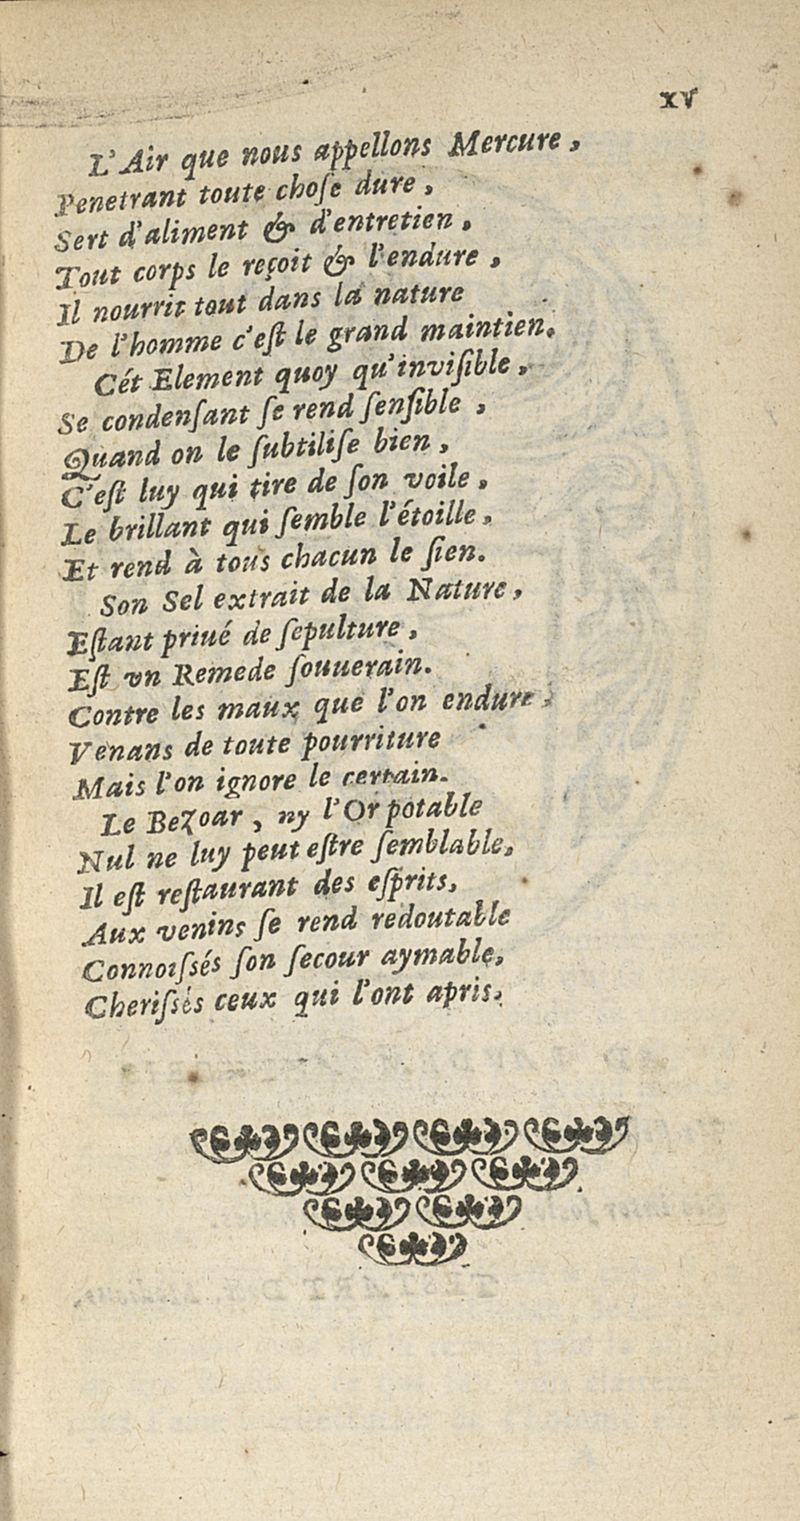 xv
L'Air que nous appellons Mercure,
Penetrant toute choſe dure,
Sert d'aliment & d'entretien,
Tout corps le reçoit & l'endure,
Il nourrit tout dans la nature
De l'homme c'eſt le grand maintien.
Cét Element quoy qu'inviſible,
Se condenſant ſe rend ſenſible,
Quand on le ſubtiliſe bien,
C'eſt luy qui tire de ſon voile,
Le brillant qui ſemble l'étoille,
Et rend à tous chacun le ſien.
Son Sel extrait de la Nature,
Eſtant priué de ſepulture,
Eſt vn Remede ſouuerain.
Contre les maux que l'on endure,
Venans de toute pourriture
Mais l'on ignore le certain.
Le Bezoar, ny l'Or potable
Nul ne luy peut eſtre ſemblable,
Il eſt reſtaurant des eſprits,
Aux venins ſe rend redoutable
Connoiſsés ſon ſecour aymable,
Cheriſsés ceux qui l'ont apris.